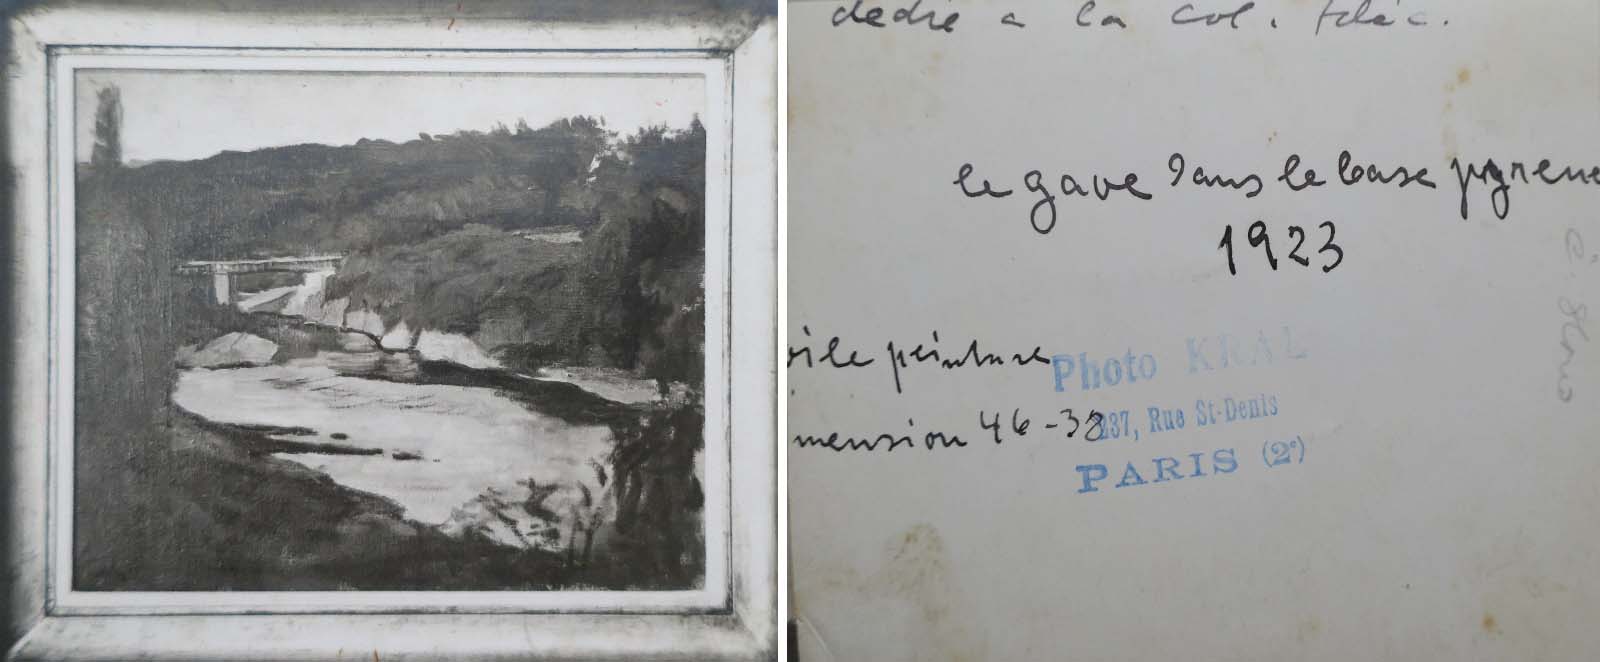 dedié a la col.
le gave dans le base pyrene
1923
oile peinture
mension 46-38
Photo KRAL
237, Rue St-Denis
PARIS (2e)